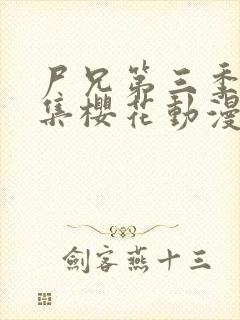 尸兄第三季
集櫻花動漫
劍客燕十三